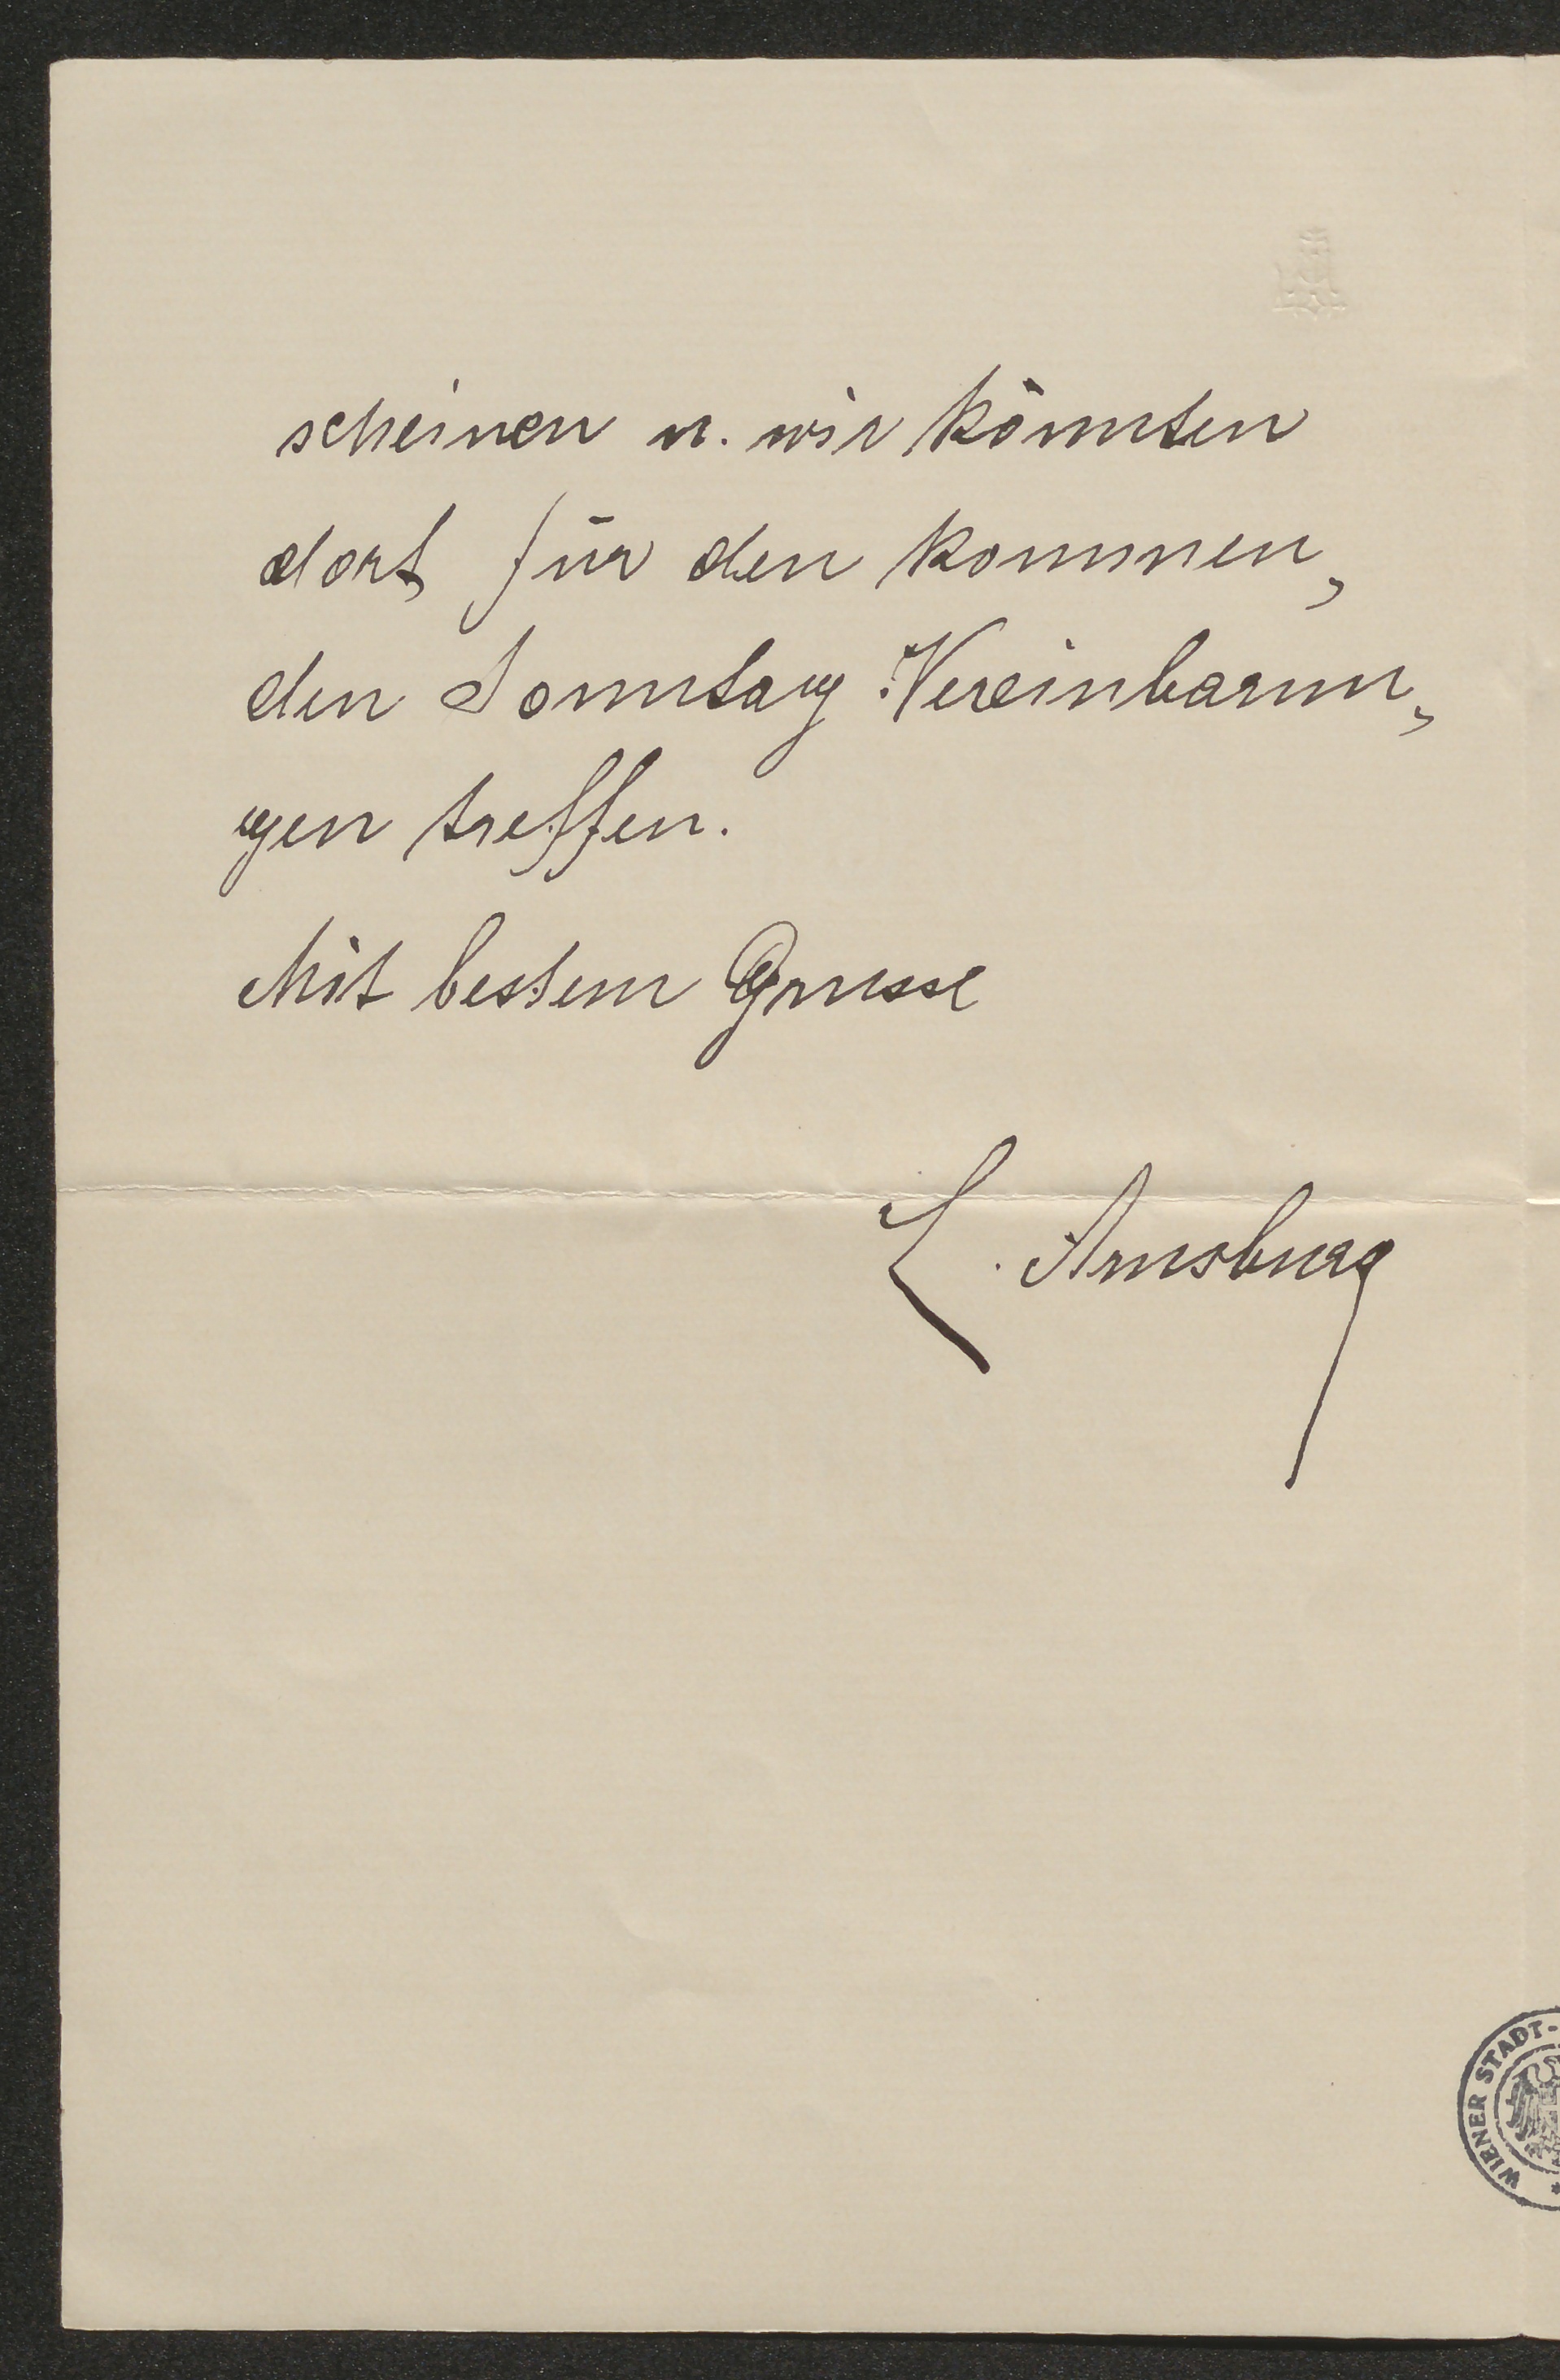 scheinen u. wir könnten
dort für den kommen,
den Sonntag Vereinbarun,
gen treffen.
Mit bestem Grusse
L. Arnsburg
WIENER STADT-